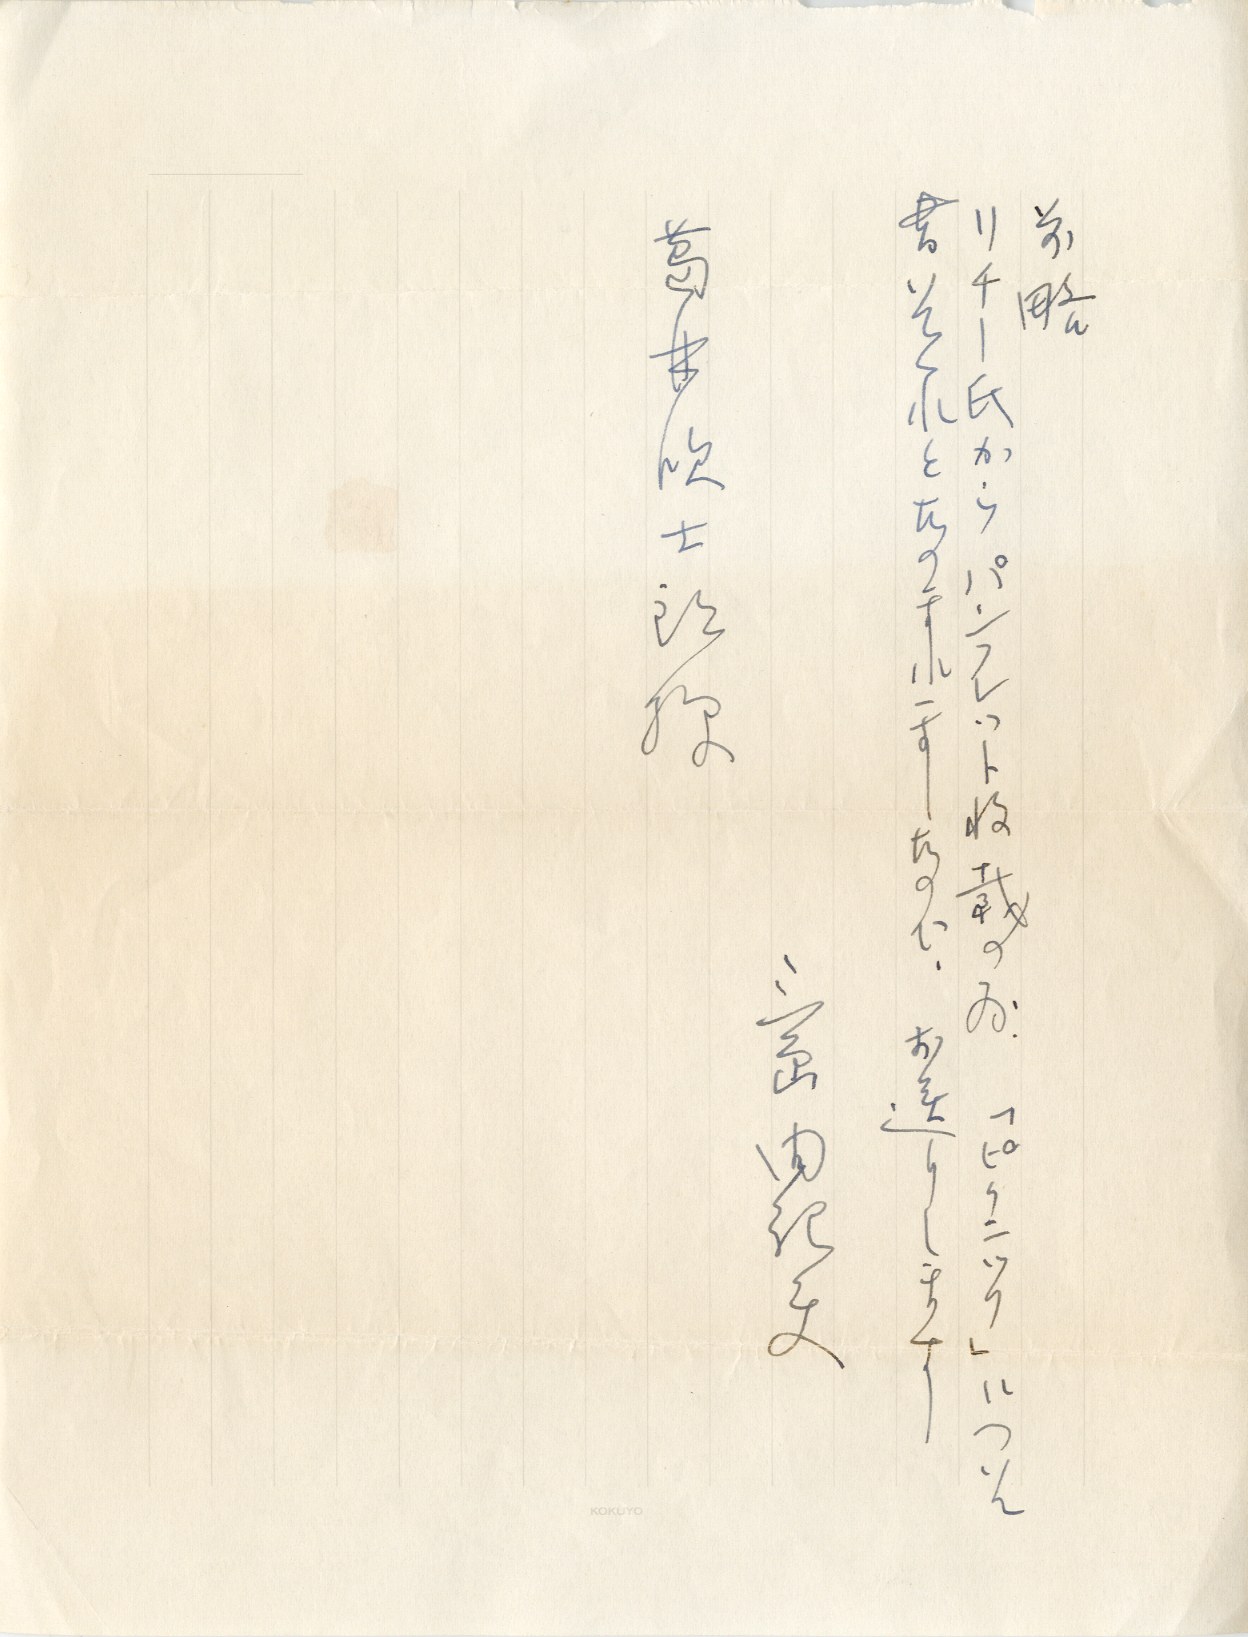 前略
リチー氏からパンフレット収載の為、「ピクニック」について
書いてくれとたのまれましたので、お送りします
三島由紀夫
葛井欣士郎様
KOKUYO